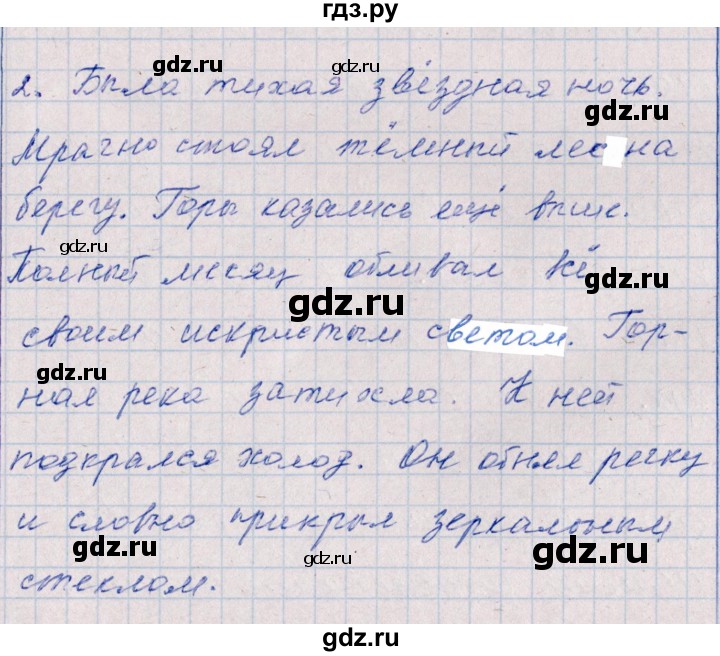 гдз.ру
gdz.ru
2. Была тихая звёздная ночь.
gdz.ru
gdz.ru
Мрачно стоял тёмный лес на
берегу. Горы казались ещё выше.
gdz.ru
Полный месяц обливал всё
gdz.ru
gdz.ru
своим искристым светом. Гор-
gdz.ru
ная река затихла. К ней
gdz.ru
подкрался холод. Он обнял речку
и словно прикрыл зеркальным
gdz.ru
gdz.ru
стеклом.
gdz.ru